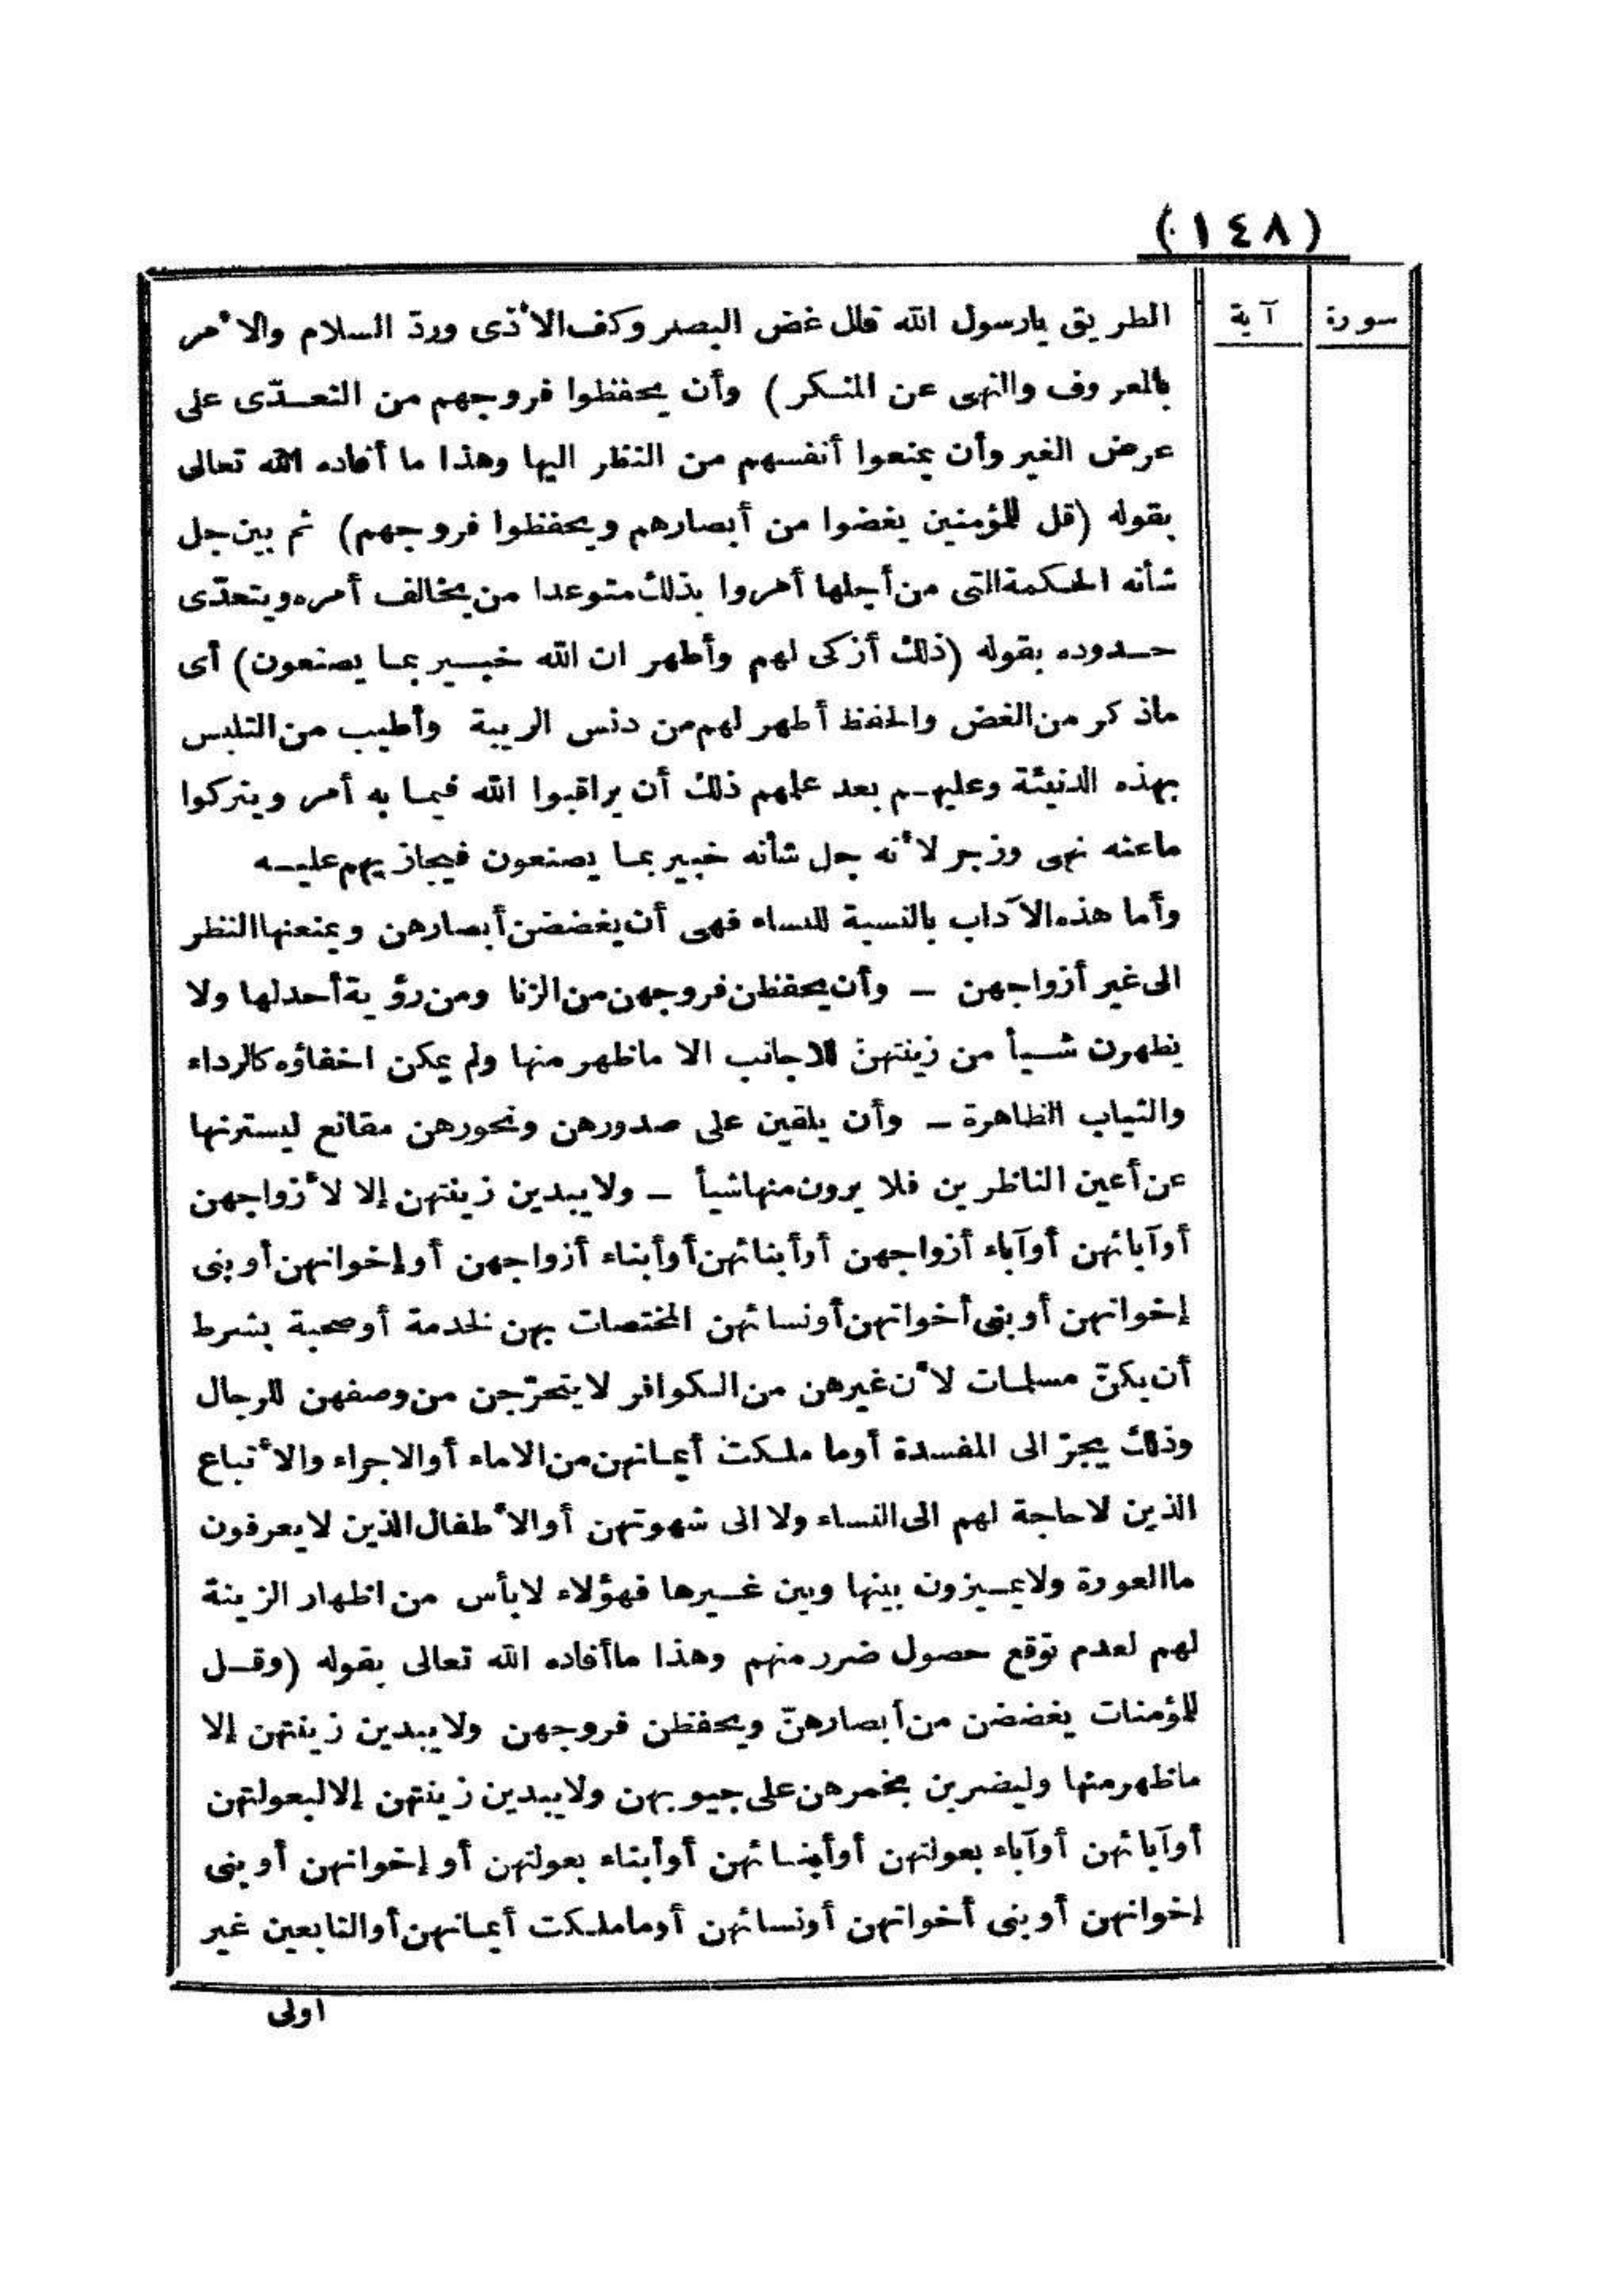 (١٤٨)
سورة آية
الطريق يارسول الله قال غض البصر وكف الأذى وردّ السلام والأمر
بالمعروف والنهى عن المنكر) وأن يحفظوا فروجهم من التعدّى على
عرض الغير وأن يمنعوا أنفسهم من النظر اليها وهذا ما أفاده الله تعالى
بقوله (قل للمؤمنين يغضوا من أبصارهم ويحفظوا فروجهم) ثم بين جل
شأنه الحكمة التى من أجلها أمروا بذلك متوعدا من يخالف أمره ويتعدّى
حدوده بقوله (ذلك أزكى لهم وأطهر ان الله خبير بما يصنعون) أى
ماذكر من الغض والحفظ أطهر لهم من دنس الريبة وأطيب من التلبس
بهذه الدنيئة وعليهم بعد علمهم ذلك أن يراقبوا الله فيما به أمر ويتركوا
ماعنه نهى وزجر لأنه جل شأنه خبير بما يصنعون فيجازيهم عليه
وأما هذه الآداب بالنسبة للنساء فهى أن يغضضن أبصارهن ويمنعنها النظر
الى غير أزواجهن ــ وأن يحفظن فروجهن من الزنا ومن رؤية أحد لها ولا
يظهرن شيأ من زينتهنّ للاجانب الا ماظهر منها ولم يمكن اخفاؤه كالرداء
والثياب الظاهرة ــ وأن يلقين على صدورهن ونحورهن مقانع ليسترنها
عن أعين الناظرين فلا يرون منها شيأ ــ ولا يبدين زينتهن إلا لأزواجهن
أو آبائهن أو آباء أزواجهن أو أبنائهن أو أبناء أزواجهن أو إخوانهن أو بنى
إخوانهن أو بنى أخواتهن أو نسائهن المختصات بهن لخدمة أو صحبة بشرط
أن يكنّ مسلمات لأن غيرهن من الكوافر لا يتحرّجن من وصفهن للرجال
وذلك يجرّ الى المفسدة أو ما ملكت أيمانهن من الاماء أو الاجراء والأتباع
الذين لا حاجة لهم الى النساء ولا الى شهوتهن أو الأطفال الذين لا يعرفون
ما العورة ولا يميزون بينها وبين غيرها فهؤلاء لا بأس من اظهار الزينة
لهم لعدم توقع حصول ضرر منهم وهذا ما أفاده الله تعالى بقوله (وقل
للمؤمنات يغضضن من أبصارهنّ ويحفظن فروجهن ولا يبدين زينتهن إلا
ماظهر منها وليضربن بخمرهن على جيوبهن ولا يبدين زينتهن إلا لبعولتهن
أو آبائهن أو آباء بعولتهن أو أبنائهن أو أبناء بعولتهن أو إخوانهن أو بنى
إخوانهن أو بنى أخواتهن أو نسائهن أو ما ملكت أيمانهن أو التابعين غير
اولى